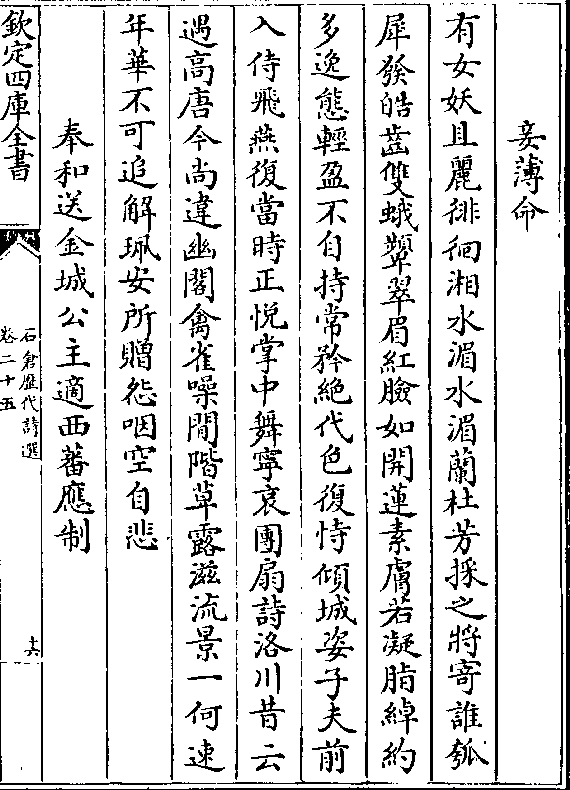 妾薄命
有女妖且麗徘徊湘水湄水湄蘭杜芳採之將寄誰瓠
犀發皓齒雙蛾顰翠眉紅臉如開蓮素膚若凝脂綽約
多逸態輕盈不自持常矜絕代色復恃傾城姿子夫前
入侍飛燕復當時正悅掌中舞寧哀團扇詩洛川昔云
遇高唐今尚違幽閣禽雀噪閒階草露滋流景一何速
年華不可追解珮安所贈怨咽空自悲
奉和送金城公主適西蕃應制
欽定四庫全書
石倉歷代詩選
卷二十五
十六